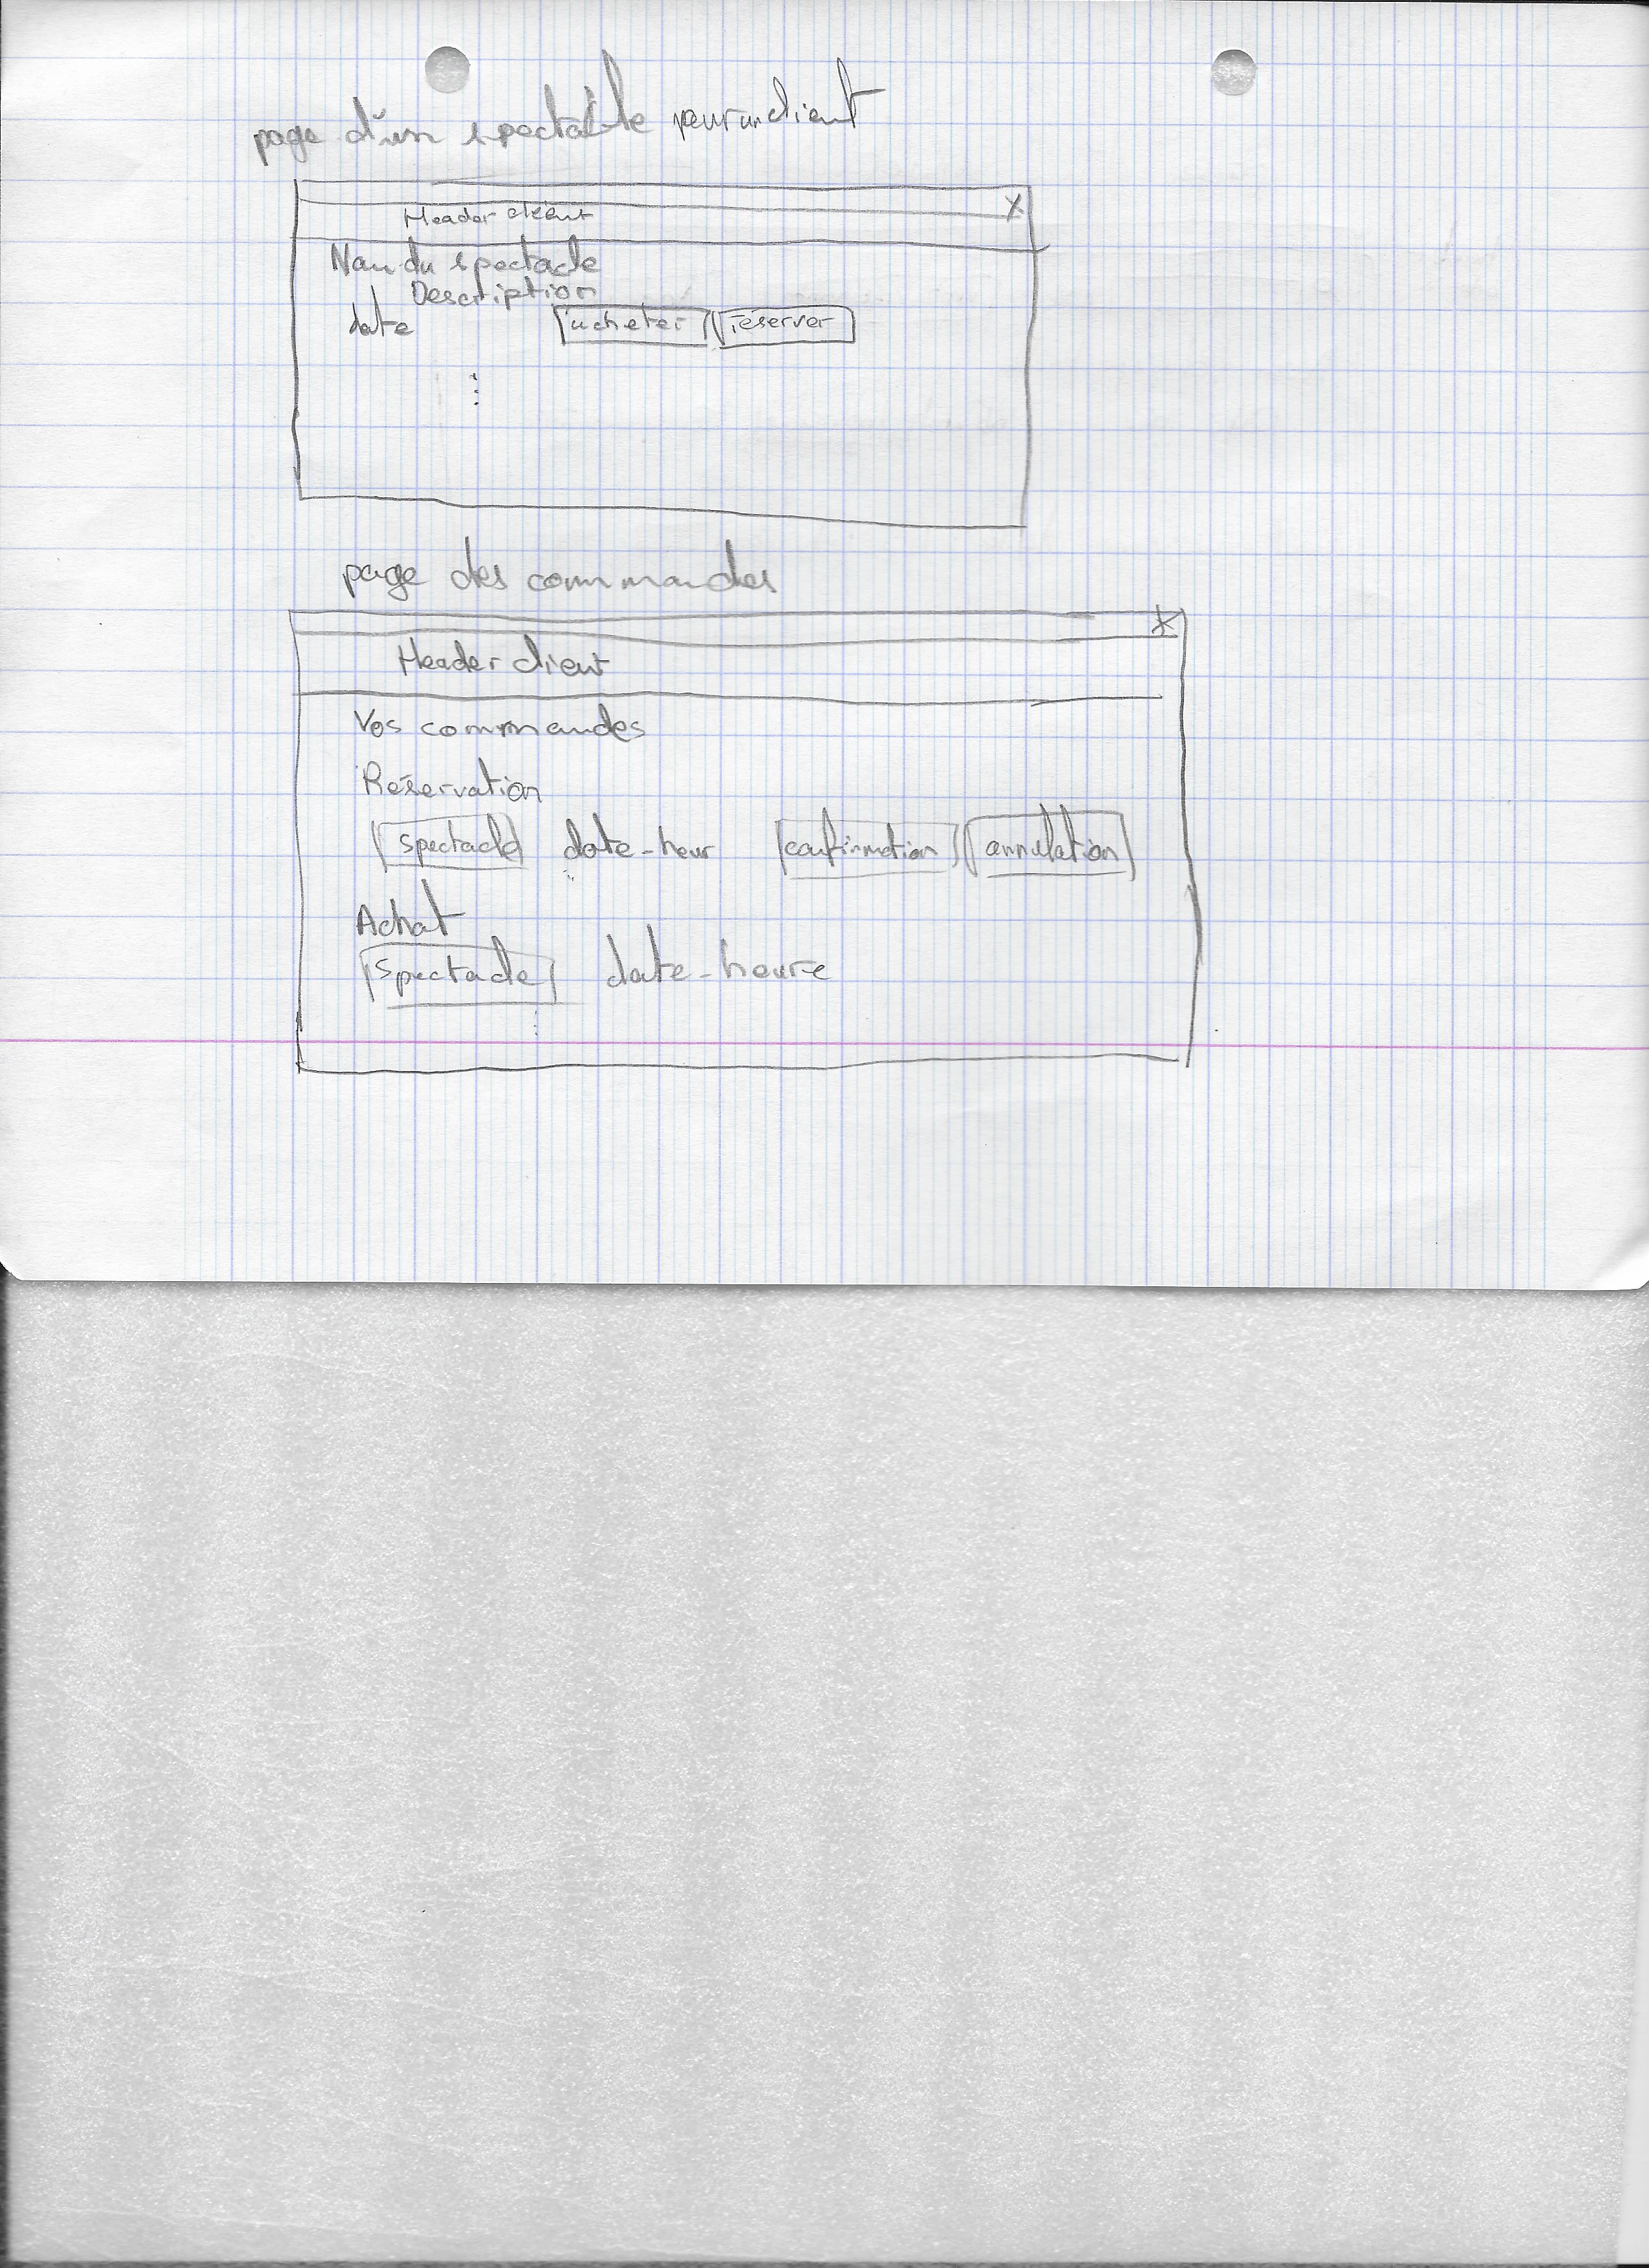 page d'un spectacle pour un client
X
Header client
Nom du spectacle
Description
date acheter réserver
page des commandes
X
Header client
Vos commandes
Réservation
spectacle date-heur confirmation annulation
Achat
spectacle date-heure